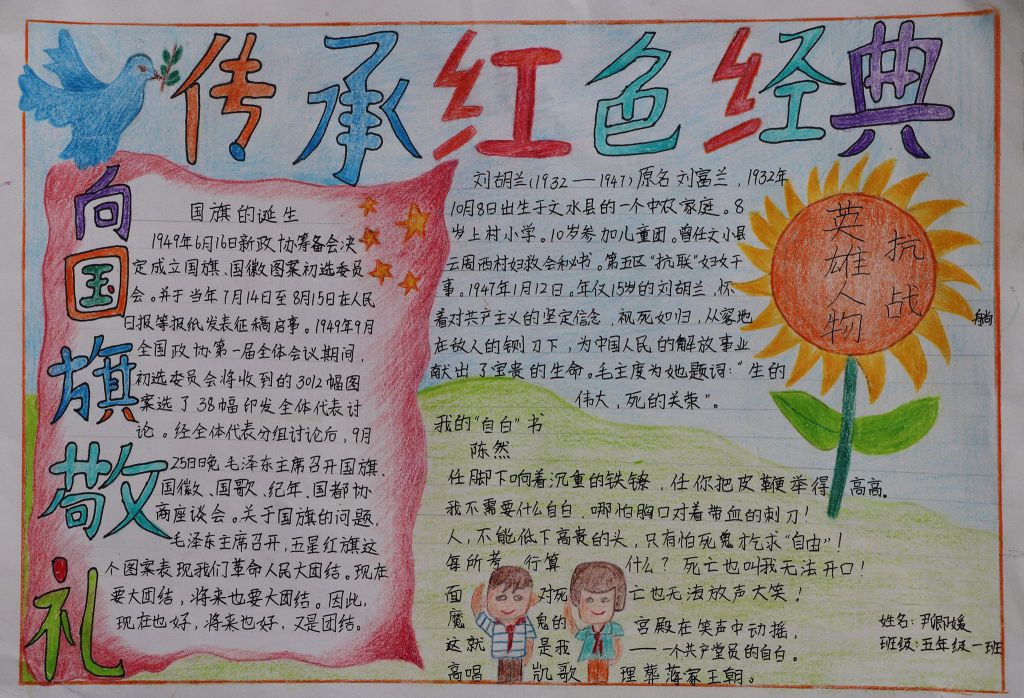 传承红色经典
向国旗敬礼
国旗的诞生
1949年6月16日新政协筹备会决
定成立国旗、国徽图案初选委员
会。并于当年7月14日至8月15日在人民
日报等报纸发表征稿启事。1949年9月
全国政协第一届全体会议期间，
初选委员会将收到的3012幅图
案选了38幅印发全体代表讨
论。经全体代表分组讨论后，9月
25日晚毛泽东主席召开国旗、
国徽、国歌、纪年、国都协
商座谈会。关于国旗的问题，
毛泽东主席召开，五星红旗这
个图案表现我们革命人民大团结。现在
要大团结，将来也要大团结。因此，
现在也好，将来也好，又是团结。
刘胡兰（1932—1947）原名刘富兰，1932年
10月8日出生于文水县的一个中农家庭。8
岁上村小学。10岁参加儿童团。曾任文水县
云周西村妇救会秘书。第五区“抗联”妇女干
事。1947年1月12日。年仅15岁的刘胡兰，怀
着对共产主义的坚定信念，视死如归，从容地
在敌人的铡刀下，为中国人民的解放事业
献出了宝贵的生命。毛主席为她题词：“生的
伟大，死的光荣”。
抗战
英雄人物
我的“自白”书
陈然
任脚下响着沉重的铁镣，任你把皮鞭举得高高。
我不需要什么自白，哪怕胸口对着带血的刺刀！
人，不能低下高贵的头，只有怕死鬼才乞求“自由”！
每所考 行算 什么？死亡也叫我无法开口！
面 对死 亡也无法放声大笑！
魔 鬼的 宫殿在笑声中动摇，
这就 是我 ——一个共产党员的自白。
高唱 凯歌 理葬蒋家王朝。
姓名：尹卿媛
班级：五年级一班